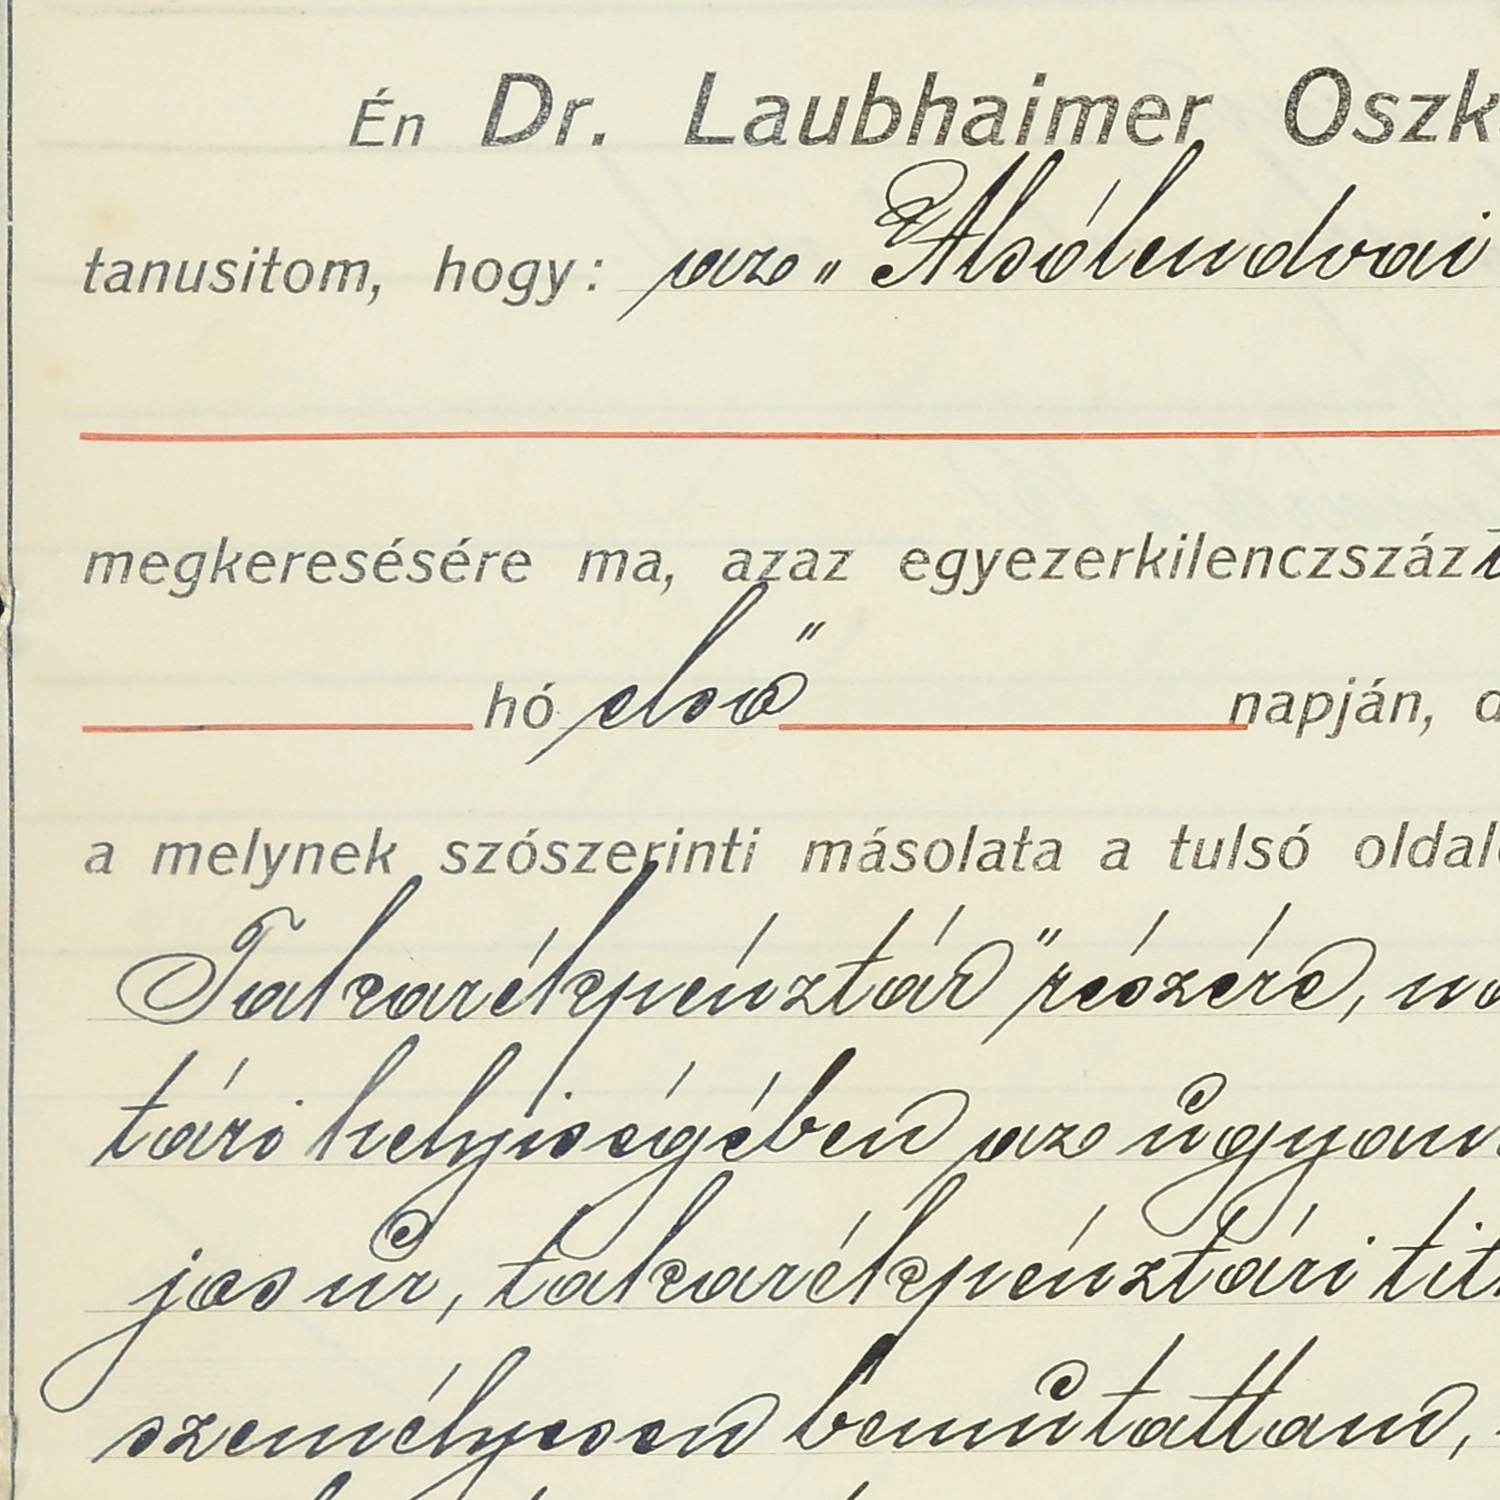 Én Dr. Laubhaimer Oszk
tanusitom, hogy: az „Alsólendvai
megkeresésére ma, azaz egyezerkilenczszáz
hó első napján, d
a melynek szószerinti másolata a tulsó oldal
Takarékpénztár" részére, n
tári helyiségében az ugyan
jas ur, takarékpénztári tit
személyesen bemutattam,